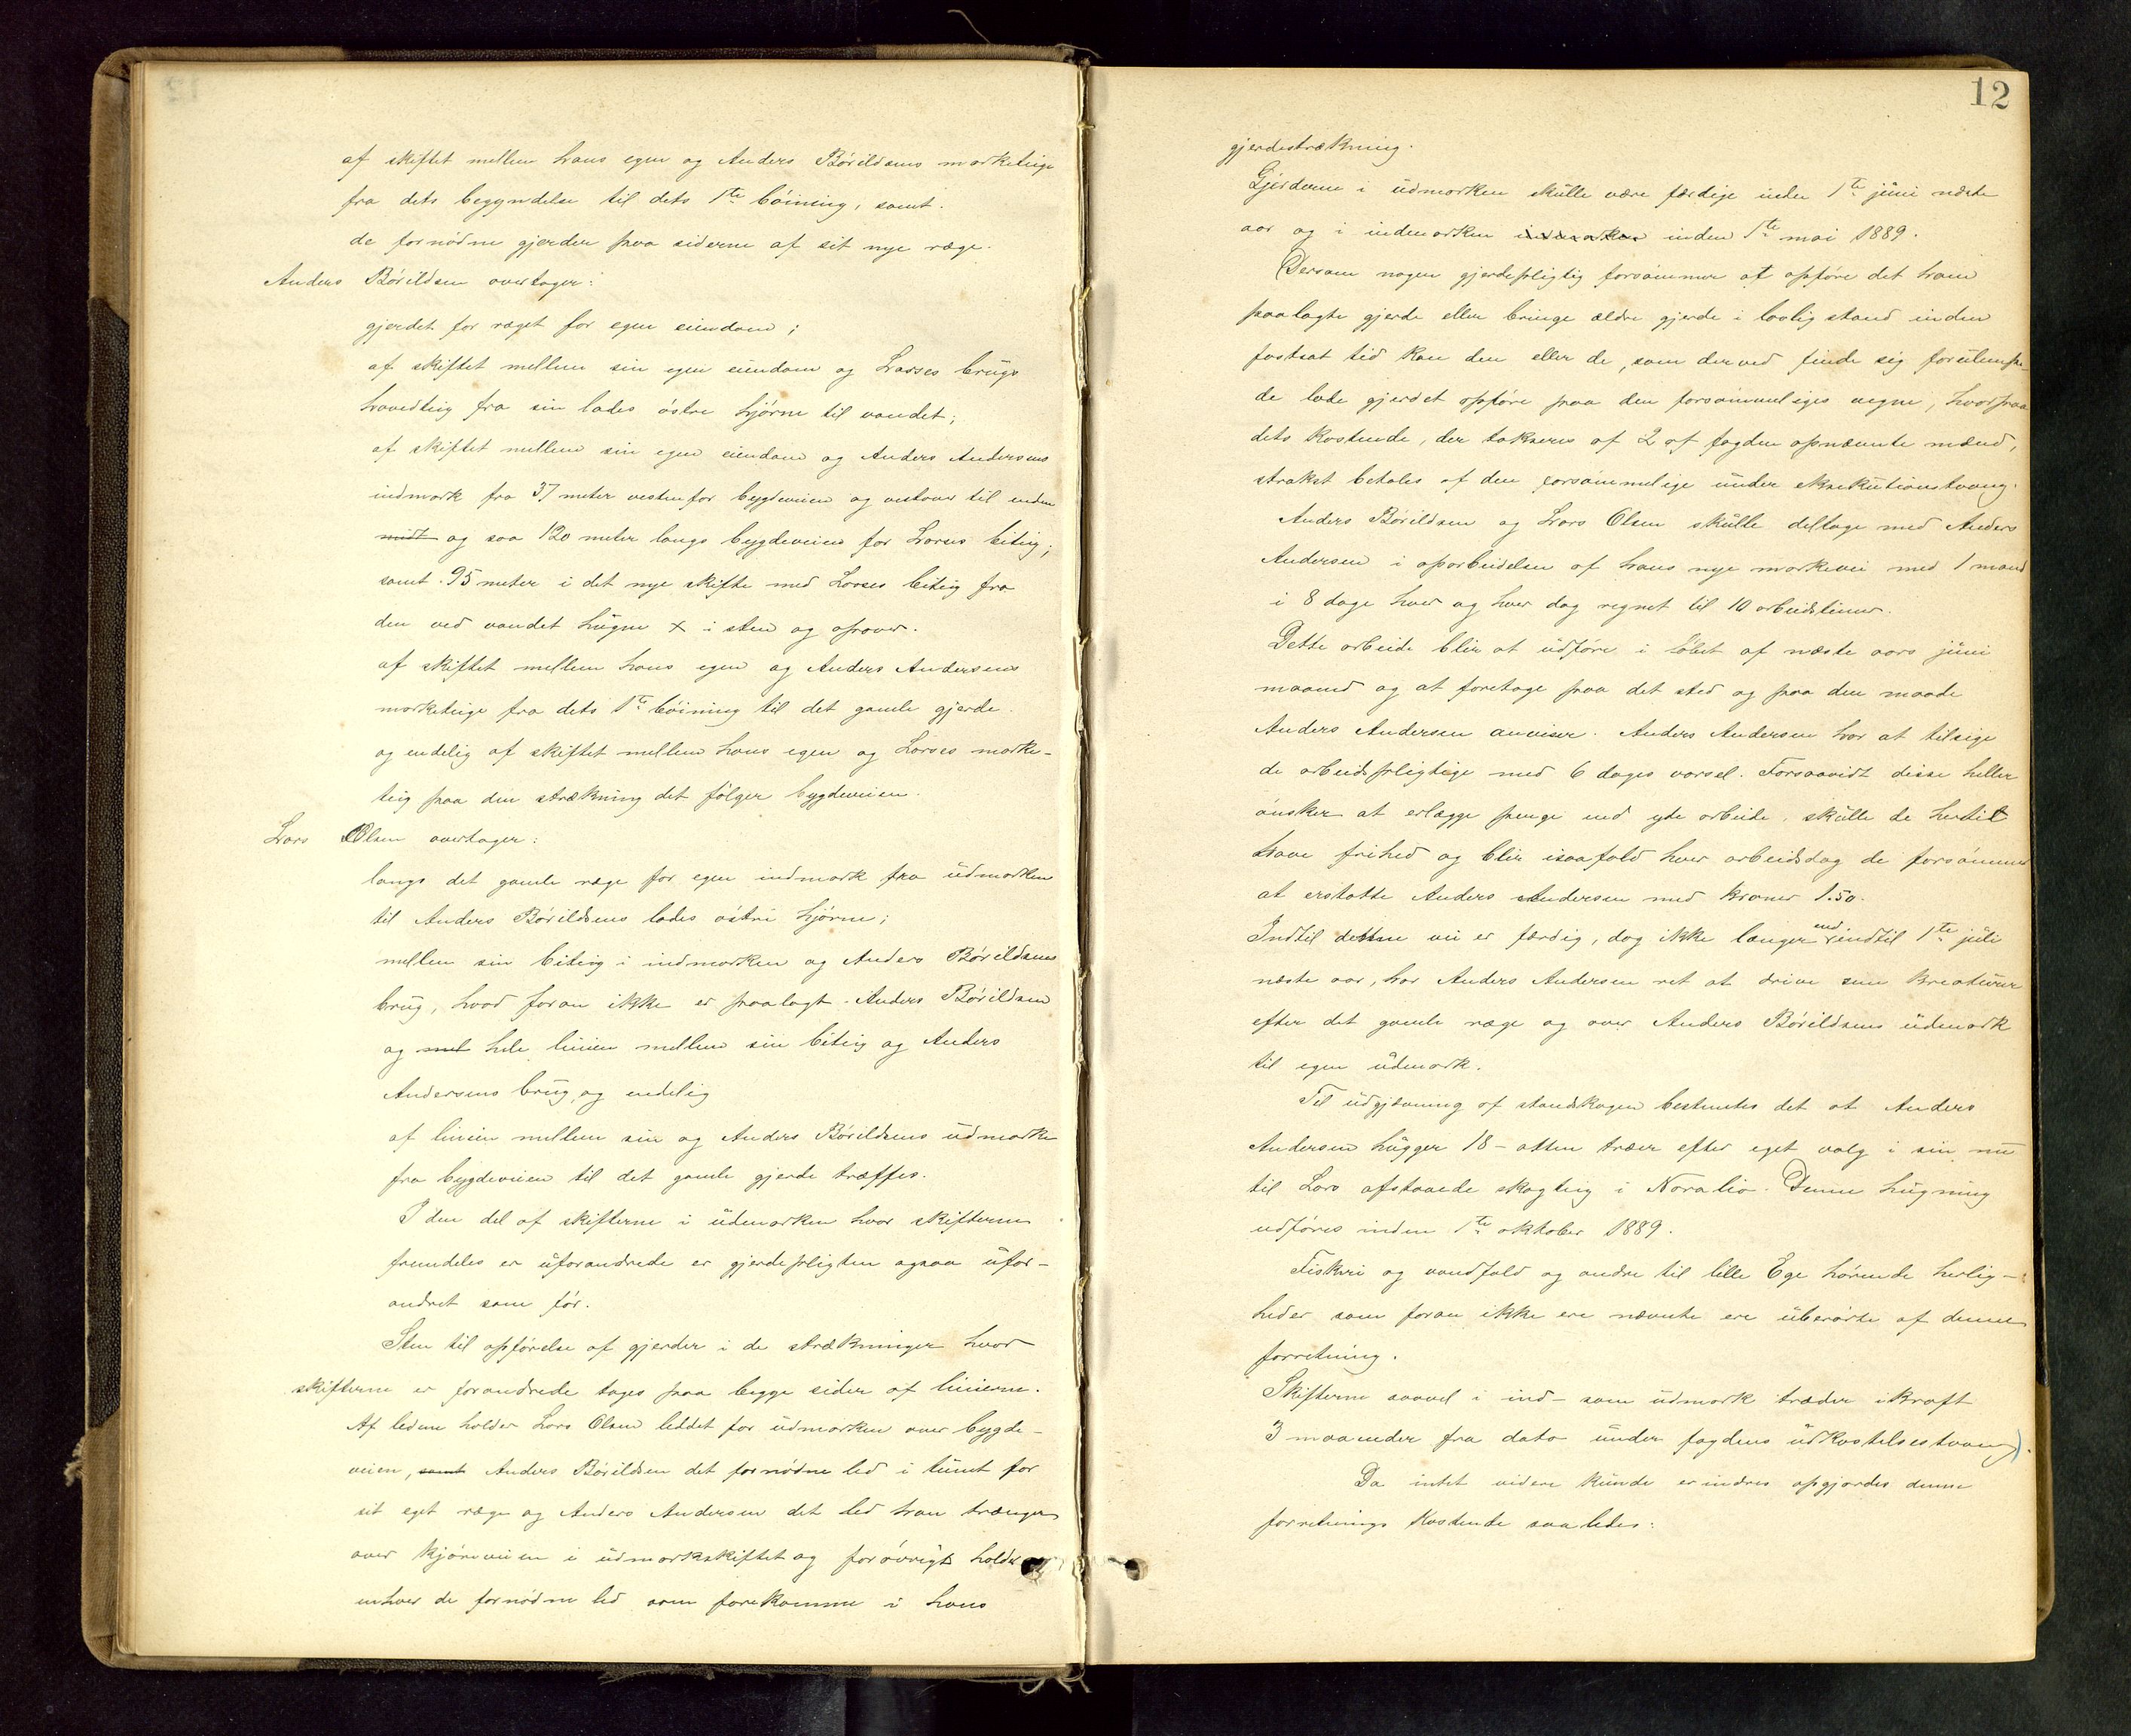 af skiftet mellem hans egen og Anders Börildsens marketeige
fra dets begyndelse til dets 1te böining, samt
de fornödne gjerder paa siderne af sit nye ræge.
Anders Börildsen overtager:
gjerdet for ræget for egen eiendom;
af skiftet mellem sin egen eiendom og Larses brugs
hovedteig fra sin lades östre hjörne til vandet;
af skiftet mellem sin egen eiendom og Anders Andersens
indmark fra 37 meter vestenfor bygdeveien og vestover til enden
midt og saa 120 meter langs bygdeveien for Larses biteig;
samt 95 meter i det nye skifte med Larses biteig fra
den ved vandet hugne x i sten og opover.
af skiftet mellem hans egen og Anders Andersens
marketeige fra dets 1te böining til det gamle gjerde.
og endelig af skiftet mellem hans egen og Larses marke-
teig paa den strækning det fölger bygdeveien.
Lars Olsen overtager:
langs det gamle ræge for egen indmark fra udmarken
til Anders Börildsens lades östre hjörne;
mellem sin biteig i indmarken og Anders Börildsens
brug, hvad foran ikke er paalagt Anders Börildsen
og mel hele linien mellem sin biteig og Anders
Andersens brug, og endelig
af linien mellem sin og Anders Börildsens udmarke
fra bygdeveien til det gamle gjerde træffes.
I den del af skifterne i udmarken hvor skifterne
fremdeles er uforandrede er gjerdepligten ogsaa ufor-
andret som för.
Sten til opförelse af gjerder i de strækninger hvor
skifterne er forandrede tages paa begge sider af linierne.
Af ledene holder Lars Olsen leddet for udmarken over bygde-
veien, samt Anders Börildsen det fornödne led i tunet for
sit eget ræge og Anders Andersen det led han trænger
over kjöreveien i udmarkskiftet og forövrigt holder
enhver de fornödne led som forekomme i hans
12
gjerdestrækning.
Gjerderne i udmarken skulle være færdige inden 1te juni næste
aar og i indmarken indmarken inden 1te mai 1889.
Dersom nogen gjerdepligtig forsömmer at opföre det ham
paalagte gjerde eller bringe ældre gjerde i lovlig stand inden
fastsat tid kan den eller de, som derved finde sig forulempe-
de lade gjerdet opföre paa den forsömmeliges vegne, hvorpaa
dets kostende, der takseres af 2 af fogden opnævnte mænd,
strakst betales af den forsömmelige under eksekutionstvang.
Anders Börildsen og Lars Olsen skulle deltage med Anders
Andersen i oparbeidelsen af hans nye markevei med 1 mand
i 8 dage hver og hver dag regnet til 10 arbeidstimer.
Dette arbeide blir at udföre i löbet af næste aars juni
maaned og at foretage paa det sted og paa den maade
Anders Andersen anviser. Anders Andersen har at tilsige
de arbeidspligtige med 6 dages varsel. Forsaavidt disse heller
önsker at erlægge penge end yde arbeide, skulle de hertil
have frihed og blir isaafald hver arbeidsdag de forsömmer
at erstatte Anders Andersen med kroner 1.50.
Indtil denne vei er færdig, dog ikke længer end indtil 1te juli
næste aar, har Anders Andersen ret at drive sine kreaturer
efter det gamle ræge og over Anders Börildsens udmark
til egen udmark.
Til udgjævning af standskogen bestemtes det at Anders
Andersen hugger 18 - atten træer efter eget valg i sin nu
til Lars afstaaede skogteig i Noralio. Denne hugning
udföres inden 1te oktober 1889.
Fiskeri og vandfald og andre til lille Ege hörende herlig-
heder som foran ikke ere nævnte ere uberörte af denne
forretning.
Skifterne saavel i ind- som udmark træder i kraft
3 maaneder fra dato under fogdens udkastelsestvang).
Da intet videre kunde erindres opgjordes denne
forretnings kostende saaledes: